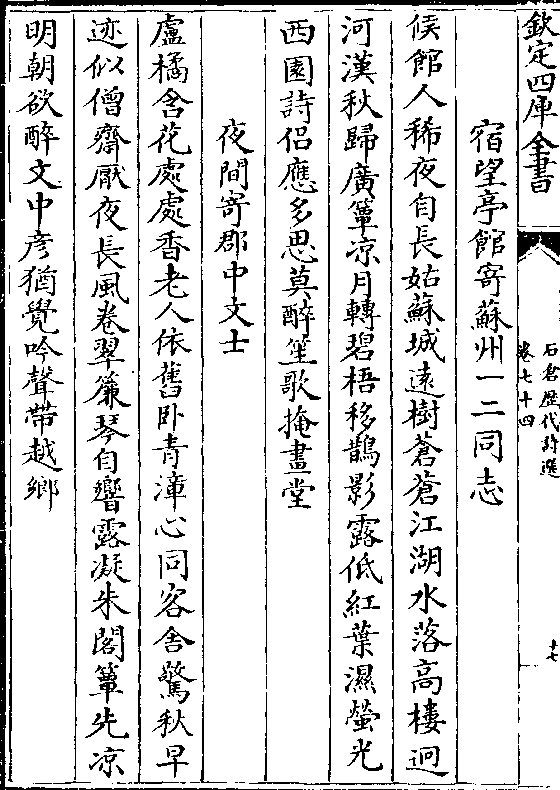 欽定四庫全書
石倉歷代詩選
卷七十四
十七
宿望亭館寄蘇州一二同志
候館人稀夜自長姑蘇城遠樹蒼蒼江湖水落高樓迥
河漢秋歸廣簟凉月轉碧梧移鵲影露低紅葉濕螢光
西園詩侣應多思莫醉笙歌掩畫堂
夜間寄郡中文士
盧橘含花處處香老人依舊卧青漳心同客舍驚秋早
迹似僧齋厭夜長風卷翠簾琴自響露凝朱閣簟先凉
明朝欲醉文中彦猶覺吟聲帶越鄉